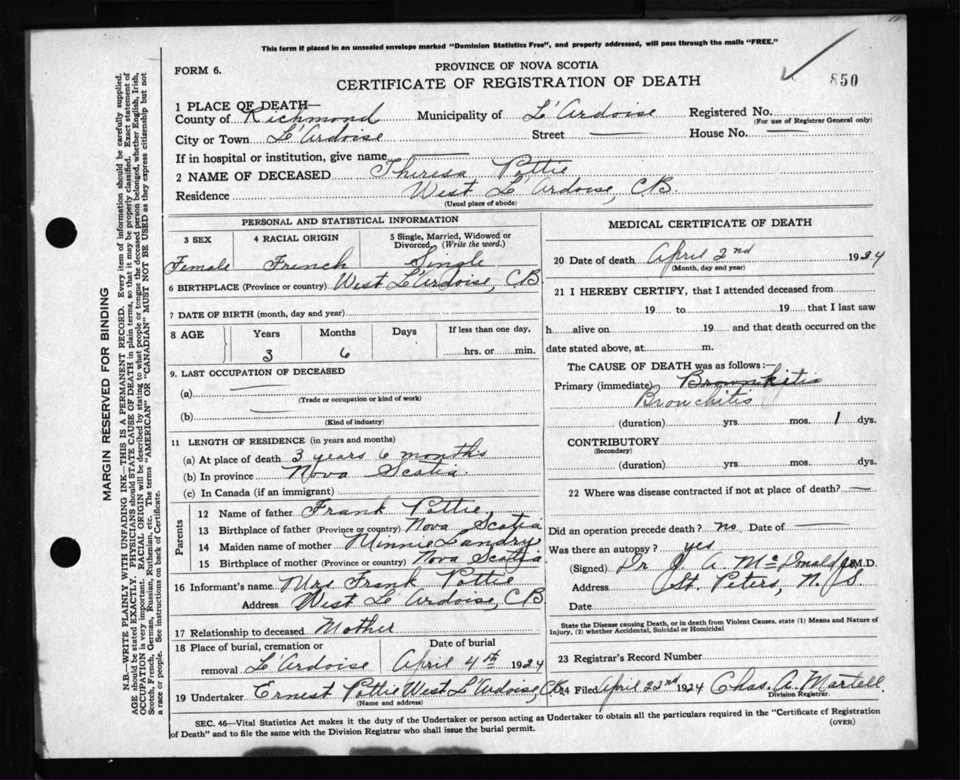 This form if placed in an unsealed envelope marked "Dominion Statistics Free", and properly addressed, will pass through the mails "FREE."
FORM 6.
PROVINCE OF NOVA SCOTIA
CERTIFICATE OF REGISTRATION OF DEATH
850
1 PLACE OF DEATH—
County of Richmond Municipality of L'Ardoise Registered No.
(For use of Registrar General only)
City or Town L'Ardoise Street — House No. —
If in hospital or institution, give name —
2 NAME OF DECEASED Theresa Pottie
Residence West L'Ardoise, C.B.
(Usual place of abode)
MARGIN RESERVED FOR BINDING
N.B.—WRITE PLAINLY WITH UNFADING INK—THIS IS A PERMANENT RECORD. Every item of information should be carefully supplied.
AGE should be stated EXACTLY. PHYSICIANS should STATE CAUSE OF DEATH in plain terms, so that it may be properly classified. Exact statement of
OCCUPATION is very important. RACIAL ORIGIN will be described by stating to what people or tongue the deceased person belonged, whether English, Irish,
Scotch, French, German, Russian, Ruthenian, etc. The terms "AMERICAN" OR "CANADIAN" MUST NOT BE USED as they express citizenship but not
a race or people. See instructions on back of Certificate.
PERSONAL AND STATISTICAL INFORMATION
3 SEX 4 RACIAL ORIGIN 5 Single, Married, Widowed or
Divorced, (Write the word.)
Female French Single
6 BIRTHPLACE (Province or country) West L'Ardoise, C.B
7 DATE OF BIRTH (month, day and year)
8 AGE Years Months Days If less than one day,
3 6 hrs. or min.
9. LAST OCCUPATION OF DECEASED
(a) —
(Trade or occupation or kind of work)
(b) —
(Kind of industry)
11 LENGTH OF RESIDENCE (in years and months)
(a) At place of death 3 years 6 months
(b) In province Nova Scotia
(c) In Canada (if an immigrant)
Parents
12 Name of father Frank Pottie,
13 Birthplace of father (Province or country) Nova Scotia
14 Maiden name of mother Minnie Landry
15 Birthplace of mother (Province or country) Nova Scotia
16 Informant's name Mrs Frank Pottie
Address West L'Ardoise, C.B
17 Relationship to deceased Mother
18 Place of burial, cremation or Date of burial
removal L'Ardoise April 4th 1924
19 Undertaker Ernest Pottie West L'Ardoise, C.B.
(Name and address)
MEDICAL CERTIFICATE OF DEATH
20 Date of death April 2nd 1924
(Month, day and year)
21 I HEREBY CERTIFY, that I attended deceased from
19 to 19 that I last saw
h alive on 19 and that death occurred on the
date stated above, at m.
The CAUSE OF DEATH was as follows:—
Primary (immediate)
Bronchitis
(duration) yrs. mos. 1 dys.
CONTRIBUTORY
(Secondary)
(duration) yrs. mos. dys.
22 Where was disease contracted if not at place of death? —
Did an operation precede death? no Date of —
Was there an autopsy? yes
(Signed) Dr J. A. McDonald M.D.
Address St. Peters, N.S
Date
State the Disease causing Death, or in death from Violent Causes, state (1) Means and Nature of
Injury, (2) whether Accidental, Suicidal or Homicidal
23 Registrar's Record Number
24 Filed April 22nd 1924 Chas. A. Martell
Division Registrar.
SEC. 46—Vital Statistics Act makes it the duty of the Undertaker or person acting as Undertaker to obtain all the particulars required in the "Certificate of Registration
of Death" and to file the same with the Division Registrar who shall issue the burial permit.
(OVER)